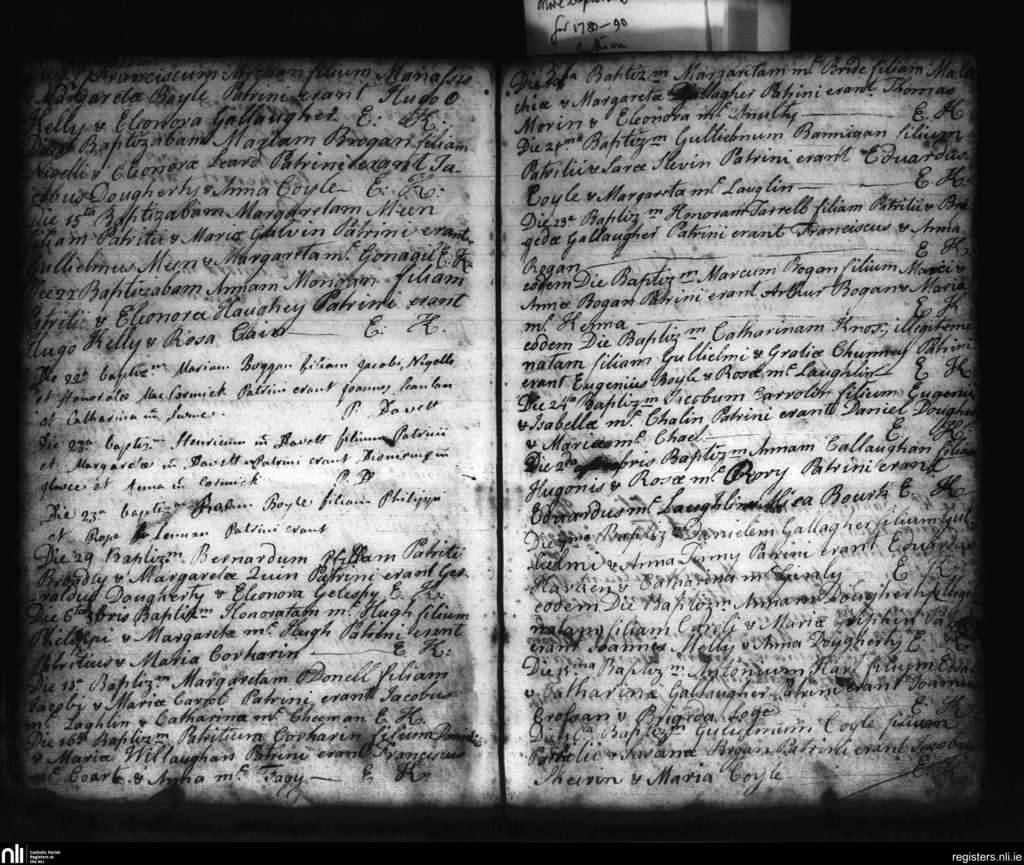 More Baptisms
for 1780-90
Franciscum Meehan filium Manassis
& Margaretæ Boyle Patrini erant Hugo O
Kelly & Eleonora Gallaugher E: K:
Baptizabam Mariam Brogan filiam
Nigelli & Eleonora Leard Patrini erant Ja-
cobus Dougherty & Anna Coyle — E: K:
Die 15ta Baptizabam Margaretam Meen
filiam Patritii & Mariæ Galvin Patrini erant
Gullielmus Meen & Margarta mc Gonagil E: K
Die 22 Baptizabam Annam Monohan filiam
Patritii & Eleonoræ Haughey Patrini erant
Hugo Kelly & Rosa Cain — E: K:
Die 22a baptizm Mariam Boggan filiam Jacobi, Nigelli
et Honoratæ Mac Cormick Patrini erant Joannes Scanlan
et Catharina mc Swine. P: Davett
Die 23a baptizm Henricum mc Davett filium Patricii
et Margaretæ mc Davett Patrini erant
et Anna mc Cormick P: D
Die 23a baptizm Boyle filiam Philippi
et Rose Lennan Patrini erant
Die 29 Baptizm Bernardum Patritii
Brogdly & Margaretæ Quin Patrini erant Ger-
raldus Dougherty & Eleonora Gelespy E: K:
Die 6ta bris Baptizm Honoratam mc Hugh filium
Philippi & Margaretæ mc Hugh Patrini erant
Patritius & Maria Corharin — E K:
Die 13a Baptizm Margaretam O Donell filiam
Jacobi & Mariæ Carrol Patrini erant Jacobus
mc Laghlin & Catharina mc Cheenan E: K.
Die 16a Baptizm Patritium Corharin filium
& Mariæ Willaughan Patrini erant Franciscus
mc Coart & Anna mc Fagy — E: K:
Die Baptizm Margaretam mc Bride filiam Mala
chiæ & Margaretæ Gallagher Patrini erant Thomas
Morin & Eleonora mc Anulty — E K
Die 21a Baptizm Gullielmum Bannigan filium
Patritii & Saræ Slevin Patrini erant Eduardus
Coyle & Margareta mc Lauglin — E. K:
Die 23a Baptizm Honoram Farrell filiam Patritii & Bri
gedæ Gallaugher Patrini erant Franciscus & Anna
Rogan — E K
eodem Die Baptizm Marcum Bogan filium Marci &
Annæ Bogan Patrini erant Arthur Bogan & Maria
mc Kenna — E K
eodem Die Baptizm Catharinam Knox, illegitime
natam filiam Gullielmi & Gratiæ Chunney Patrini
erant Eugenius Boyle & Rosa mc Laughlin — E K
Die 24a Baptizm Jacobum Carrolin filium Eugenii
& Isabellæ mc Chalin Patrini erant Daniel Dougher
& Maria mc Chael — E K
Die 2da bris Baptizm Annam Callaughan filiam
Hugonis & Rosæ mc Rory Patrini erant
Eduardus mc Laughlin & Bourk E. K
Die Baptiz Danielem Gallagher filium Gul
lielmi & Anna Finny Patrini erant Eduardus
Harken & Catharina mc Ginly E K
eodem Die Baptizm Annam Dougherty illegit
natam filiam Caroli & Mariæ Griphin Patrini
erant Joannes Melly & Anna Dougherty E K
Die 15ma Baptizm Antonium Hart filium
& Catharinæ Gallaugher Patrini erant Joannes
Crossan & Brigida E K
Die Baptizm Gulielmum Coyle filium
Patritii & Susanæ Bogan Patrini erant Jacobus
Sheerin & Maria Coyle E
nli
Catholic Parish
Registers at
the NLI
registers.nli.ie